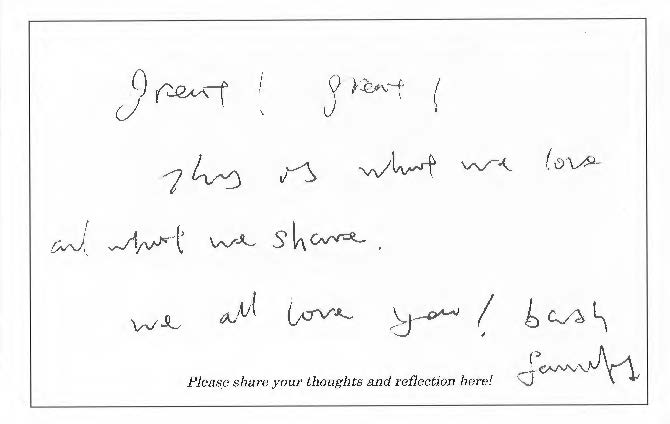 Great! great!
This is what we love
and what we share.
we all love you! bash
family
Please share your thoughts and reflection here!